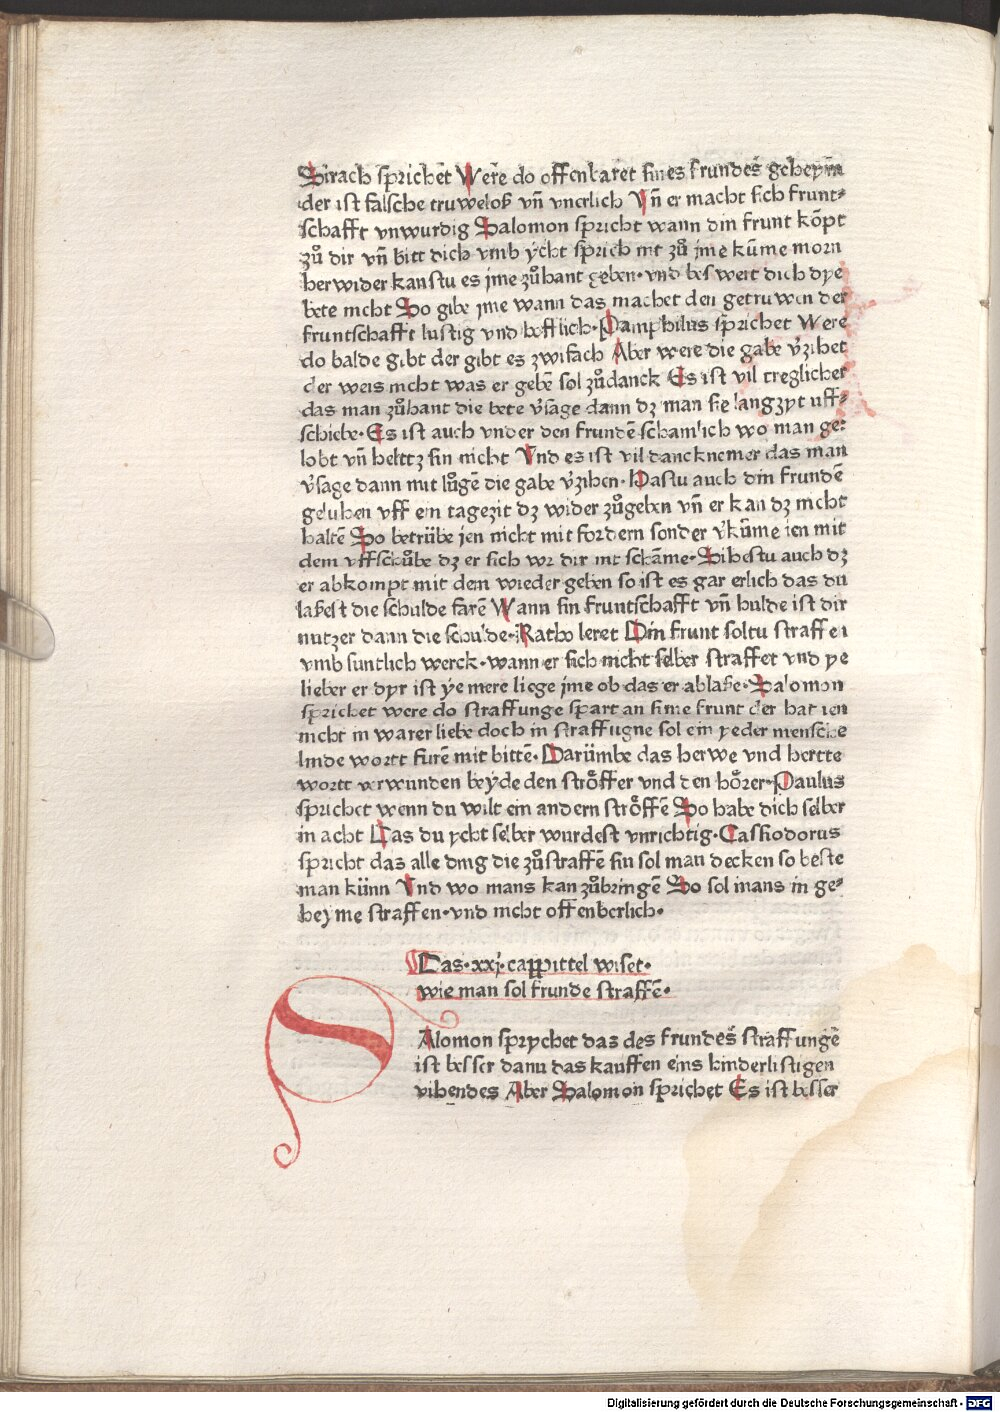 Sirach sprichet Were do offenbaret sines frundes̃ geheym̃
der ist falsche truweloß vñ vnerlich Vñ er macht sich frunt-
schafft vnwurdig Salomon spricht wann din frunt kõpt
zů dir vñ bitt dich vmb ycht sprich nit zů jme kũme morn
herwider kanstu es jme zůhant geben· vnd beswert dich dye
bete nicht So gibe jme wann das machet den getruwen der
fruntschafft lustig vnd hofflich· Pamphilus sprichet Were
do balde gibt der gibt es zwifach Aber were die gabe v̾zihet
der weis nicht was er gebẽ sol zůdanck Es ist vil treglicher
das man zůhant die bete v̾sage dann dz man sie langzyt uff-
schiebe· Es ist auch vnder den frundẽ schamlich wo man ge-
lobt vñ heltz sin nicht Vnd es ist vil dancknemer das man
v̾sage dann mit lůgẽ die gabe v̾zihen· Hastu auch din frundẽ
geluhen vff ein tagezit dz wider zůgeben vñ er kan dz nicht
haltẽ So betrübe jen nicht mit fordern sonder v̾kũme ien mit
dem vffschůbe dz er sich vor dir nit schãme· Sihestu auch dz
er abkompt mit dem wieder geben so ist es gar erlich das du
laßest die schulde farẽ Wann sin fruntschafft vñ hulde ist dir
nutzer dann die schulde· Katho leret Din frunt soltu straffen
vmb suntlich werck· wann er sich nicht selber straffet vnd ye
lieber er dyr ist ye mere liege jme ob das er ablaße· Salomon
sprichet were do straffunge spart an sime frunt der hat ien
nicht in warer liebe doch in straffugne sol ein yeder mensche
linde wortt furẽ mit bittẽ· Darümbe das herwe vnd hertte
wortt verwunden beyde den ströffer vnd den hörer· Paulus
sprichet wenn du wilt ein andern ströffẽ So habe dich selber
in acht Das du ycht selber wurdest vnrichtig· Cassiodorus
spricht das alle ding die zůstraffẽ sin sol man decken so beste
man künn Vnd wo mans kan zůbringẽ So sol mans in ge-
heyme straffen· vnd nicht offenberlich·
Das·xxj·cappittel wiset·
wie man sol frunde straffẽ·
SAlomon sprychet das des frundes̃ straffungẽ
ist besser dann das kauffen eins hinderlistigen
vihendes Aber Salomon sprichet Es ist besser
Digitalisierung gefördert durch die Deutsche Forschungsgemeinschaft - DFG